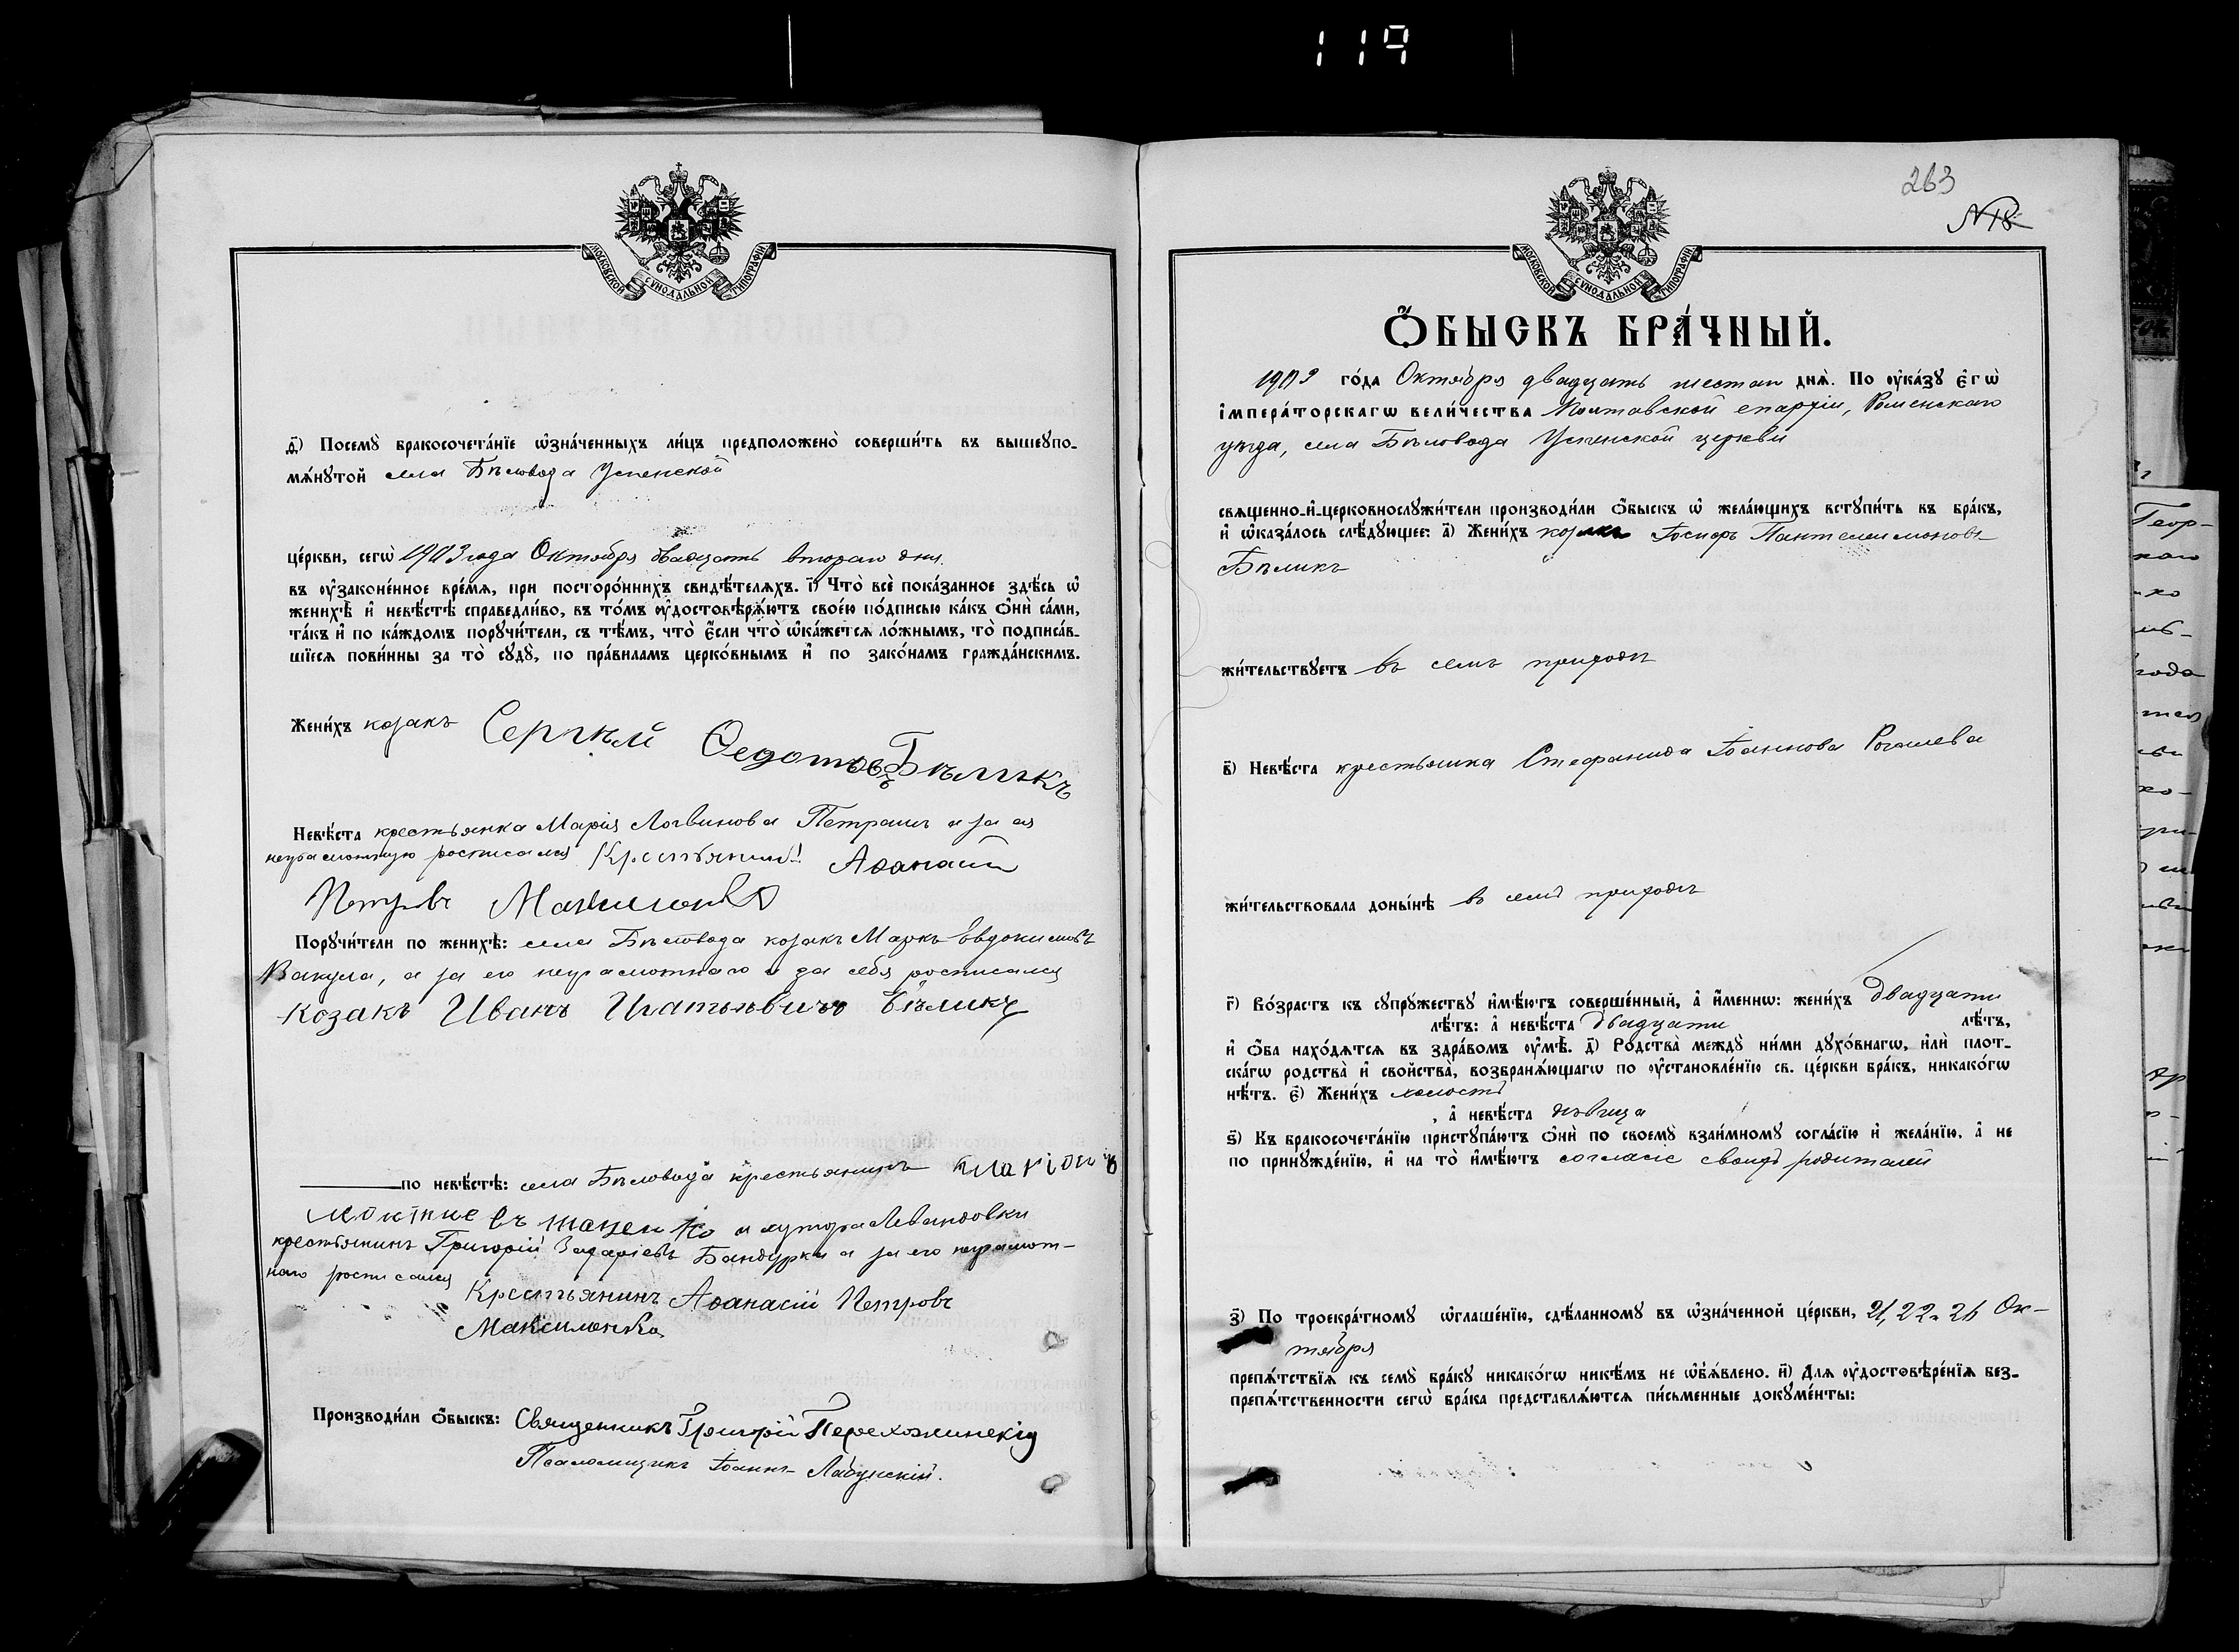 119
МОСКОВСКОЙ СѴНОДАЛЬНОЙ ТИПОГРАФІИ
д҃) Посемꙋ̀ бракосочета́нїе ѡ҆зна́ченныхъ ли́цъ предположено̀ соверши́ть въ вышеꙋпо-
мѧ́нꙋтой села Бѣловода Успенской
це́ркви, сегѡ̀ 1903 года Октября двадцать втораго дня.
въ ᲂу҆зако́ненное вре́мѧ, при посторо́ннихъ свидѣ́телѧхъ. і҃) Что̀ всѐ пока́занное здѣ́сь ѡ҆
женихѣ̀ и҆ невѣ́стѣ справедли́во, въ то́мъ ᲂу҆достовѣрѧ́ютъ свое́ю по́дписью ка́къ ѻ҆нѝ са́ми,
та́къ и҆ по ка́ждомъ порꙋчи́тели, съ тѣ́мъ, что̀ є҆́сли что̀ ѡ҆ка́жетсѧ ло́жнымъ, то̀ подписа́в-
шїесѧ пови́нны за то̀ сꙋдꙋ̀, по пра́виламъ церко́внымъ и҆ по зако́намъ гражда́нскимъ.
Жени́хъ козакъ Сергѣй Ѳедотовъ Бѣликъ
Невѣ́ста крестьянка Марія Логвинова Петраш а за ея
неграмотную росписался Крестьянинъ Аѳанасій
Петровъ Максименко
Порꙋчи́тели по женихѣ̀: села Бѣловода козакъ Маркъ Евдокимовъ
Вакула, а за его неграмотнаго и за себя росписался
козакъ Иванъ Игнатьевичъ Бѣликъ
по невѣ́стѣ: села Бѣловода крестьянинъ
и хутора
крестьянинъ Григорій Захаріевъ Бандурка а за его неграмот-
наго росписался Крестьянинъ Аѳанасій Петровъ
Максименко
Производи́ли ѻ҆́быскъ: Священникъ Григорій Перехожинскій
Псаломщикъ Іоаннъ Лабунскій.
263
N 18
МОСКОВСКОЙ СѴНОДАЛЬНОЙ ТИПОГРАФІИ
Ѻ҆́БЫСКЪ БРА́ЧНЫЙ.
1903 го́да Октября двадцать шестаго днѧ̀. По ᲂу҆ка́зꙋ є҆гѡ̀
і҆мпера́торскагѡ вели́чества Полтавской епархіи, Роменскаго
уѣзда, села Бѣловода Успенской церкви
свѧщенно-и҆-церковнослꙋжи́тели производи́ли ѻ҆́быскъ ѡ҆ жела́ющихъ встꙋпи́ть въ бра́къ,
и҆ ѡ҆каза́лось слѣ́дꙋющее: а҃) Жени́хъ козакъ Іосифъ Пантелеимоновъ
Бѣликъ
жи́тельствꙋетъ въ семъ приходѣ
в҃) Невѣ́ста крестьянка Стефанида Іоаннова
жи́тельствовала донн́нѣ въ семъ приходѣ
г҃) Во́зрастъ къ сꙋпрꙋ́жествꙋ и҆мѣ́ютъ соверше́нный, а҆ и҆́менно: жени́хъ двадцати
лѣ́тъ: а҆ невѣ́ста двадцати лѣ́тъ,
и҆ ѻ҆́ба нахо́дѧтсѧ въ здра́вомъ ᲂу҆мѣ̀. д҃) Родства̀ междꙋ ни́ми дꙋхо́внагѡ, и҆лѝ плот-
ска́гѡ родства̀ и҆ свойства̀, возбранѧ́ющагѡ по ᲂу҆становле́нїю св. це́ркви бра́къ, никако́гѡ
нѣ́тъ. є҃) Жени́хъ холостъ
, а҆ невѣ́ста дѣвица
ѕ҃) Къ бракосочета́нїю пристꙋпа́ютъ ѻ҆нѝ по своемꙋ̀ взаи́мномꙋ согла́сїю и҆ жела́нїю, а҆ не
по принꙋжде́нїю, и҆ на то̀ и҆мѣ́ютъ согласіе своихъ родителей
з҃) По троекра́тномꙋ ѡ҆глаше́нїю, сдѣ́ланномꙋ въ ѡ҆зна́ченной це́ркви, 21, 22 и 26 Ок-
тября
препѧ́тствїѧ къ семꙋ̀ бра́кꙋ никако́гѡ никѣ́мъ не ѡ҆б̾ѧ́влено. и҃) Длѧ ᲂу҆достовѣре́нїѧ без-
препѧ́тственности сегѡ̀ бра́ка представлѧ́ютсѧ пи́сьменные докꙋме́нты: